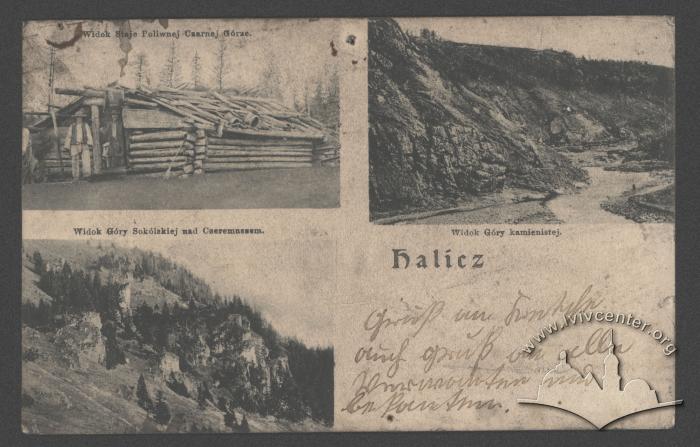 Widok Staje Poliwnej Czarnej Górze.
Widok Góry Sokólskiej nad Czeremoszem.
Widok Góry kamienistej.
Halicz
Gruß an
auch gruß an alle
Verwandten und
bekanten.
www.lvivcenter.org